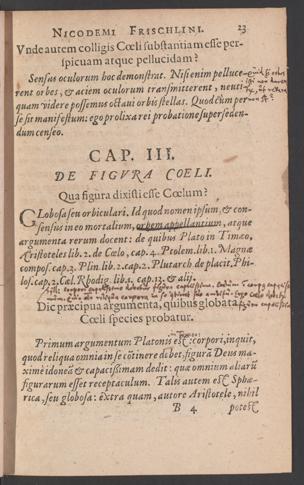 NICODEMI FRISCHLINI. 23
Vnde autem colligis Cœli substantiam esse per-
spicuam atque pellucidam?
Sensus oculorum hoc demonstrat. Nisi enim pelluce-
rent orbes, & aciem oculorum transmitterent, neuti-
quam videre possemus octaui orbis stellas. Quod cùm per
se sit manifestum: ego prolixa rei probatione superseden-
dum censeo.
CAP. III.
DE FIGVRA COELI.
Qua figura dixisti esse Cœlum?
Globosa seu orbiculari. Id quod nomen ipsum, & con-
sensus in eo mortalium, orbem appellantium, atque
argumenta rerum docent: de quibus Plato in Timæo,
Aristoteles lib. 2. de Cœlo, cap. 4. Ptolem. lib. 1. Magnæ
compos. cap. 3. Plin. lib. 2. cap. 2. Plutarch. de placit. Phi-
los. cap. 2. Cæl. Rhodig. lib. 1. cap. 12. & alij.
Dic præcipua argumenta, quibus globata
Cœli species probatur.
Primum argumentum Platonis est: corpori, inquit,
quod reliqua omnia in se cõtinere debet, figurã Deus ma-
ximè idoneã & capacissimam dedit: qua omnium aliarũ
figurarum esset receptaculum. Talis autem est Sphæ-
rica, seu globosa: extra quam, autore Aristotele, nihil
B 4 potest